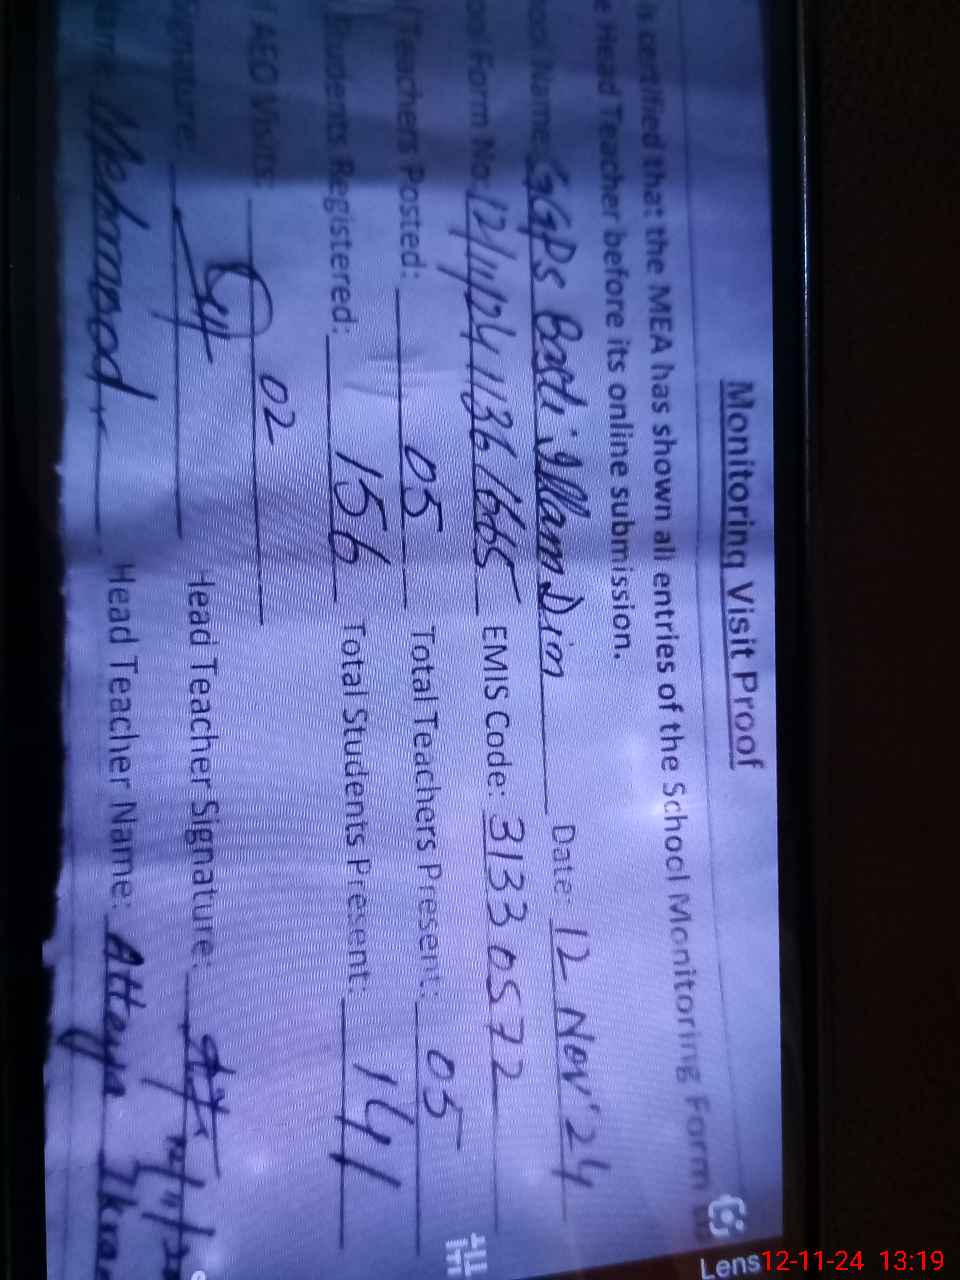 Monitoring Visit Proof
is certified that the MEA has shown all entries of the School Monitoring Form
e Head Teacher before its online submission.
ool Name: GGPS Basti Illam Din Date: 12 Nov'24
ool Form No: 12/11/24 1136 1665 EMIS Code: 31330572
Teachers Posted: 05 Total Teachers Present: 05
Students Registered: 156 Total Students Present: 141
AEO Visits: 02
ignature: Head Teacher Signature:
Mehmood Head Teacher Name: Atteya Ikra
Lens
12-11-24 13:19